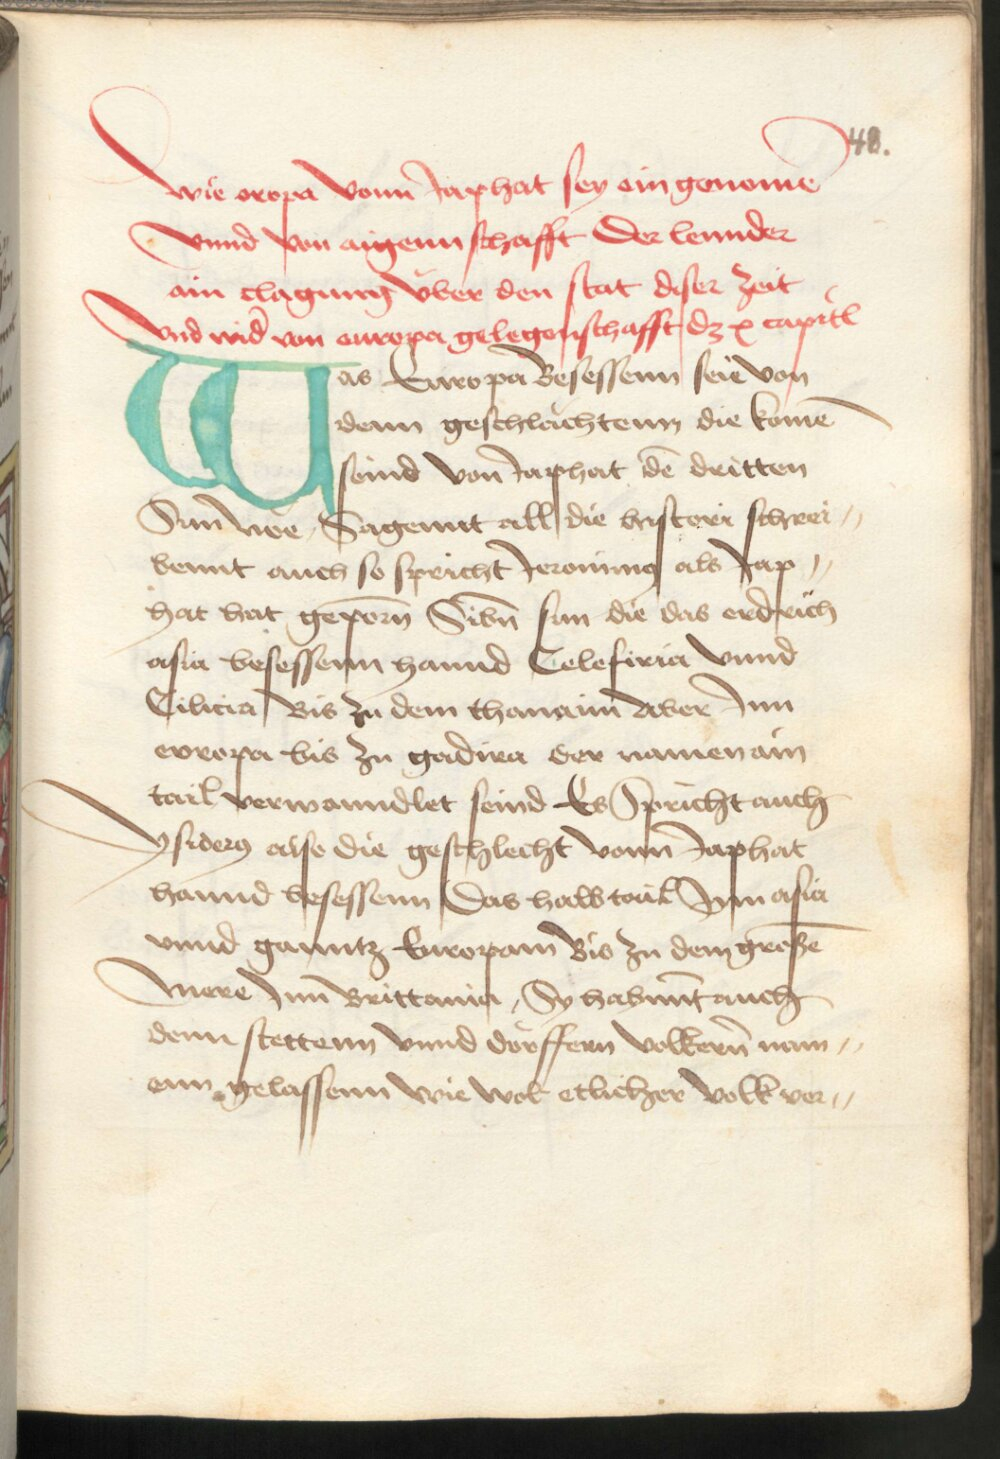 48.
wie eropa vonn Japhat sey ein genomē
vnnd von aigennschafft der lennder
ain clagung vber den stat diser zeit
vnd wid̄ von europa gelegenschafft dz x capitl
Was Europa Besessenn seie von
denn geschlächtenn die komē
seind von Japhat dē dritten
Sun wie Sagennt all die histori schrei
bennt auch so spricht Jeronimꝯ als Jap
hat hat geporn̄ Sibn̄ sun die das erdrich
asia besessenn hannd Celesiria vnnd
Cilicia Bis zu dem thanaim Aber Inn
evropa bis zu gadira der namen ain
tail verwanndlet seind Es Spricht auch
ysiderꝯ also die geschlecht vonn Japhat
hannd besessenn Das halb tail Inn asia
vnnd ganntz Europam Bis zu dem grossē
mere Inn Brittania, Sy habmt auch
denn stettenn vnnd dörffern volkern̄ nam
enn gelassenn wie wol etlicher volk ver